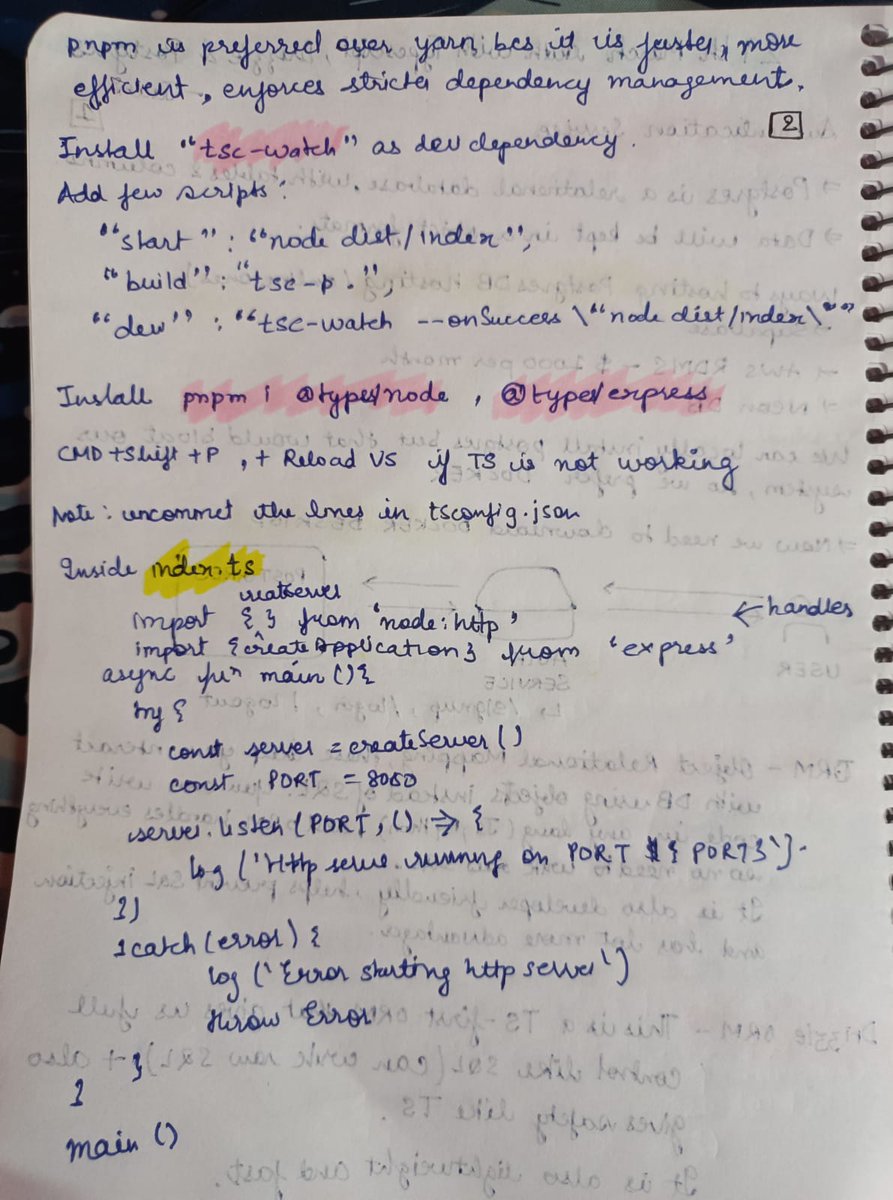 pnpm is preferred over yarn bcs it is faster, more
efficient, enforces stricter dependency management.
2
Install "tsc-watch" as dev dependency.
Add few scripts:
"start": "node dist/index",
"build": "tsc -p .",
"dev": "tsc-watch --onSuccess \"node dist/index\""
Install pnpm i @types/node, @types/express.
CMD+Shift+P, + Reload VS if TS is not working
Note: uncommet the lines in tsconfig.json
Inside index.ts
createServer
import { } from 'node:http'
← handles
import {createApplication} from 'express'
async fun main () {
try {
const server = createServer ()
const PORT = 8080
server.listen (PORT, () => {
log ('Http serve running on PORT ${PORT}').
})
} catch (error) {
log ('Error starting http server')
throw Error
}
}
main ()